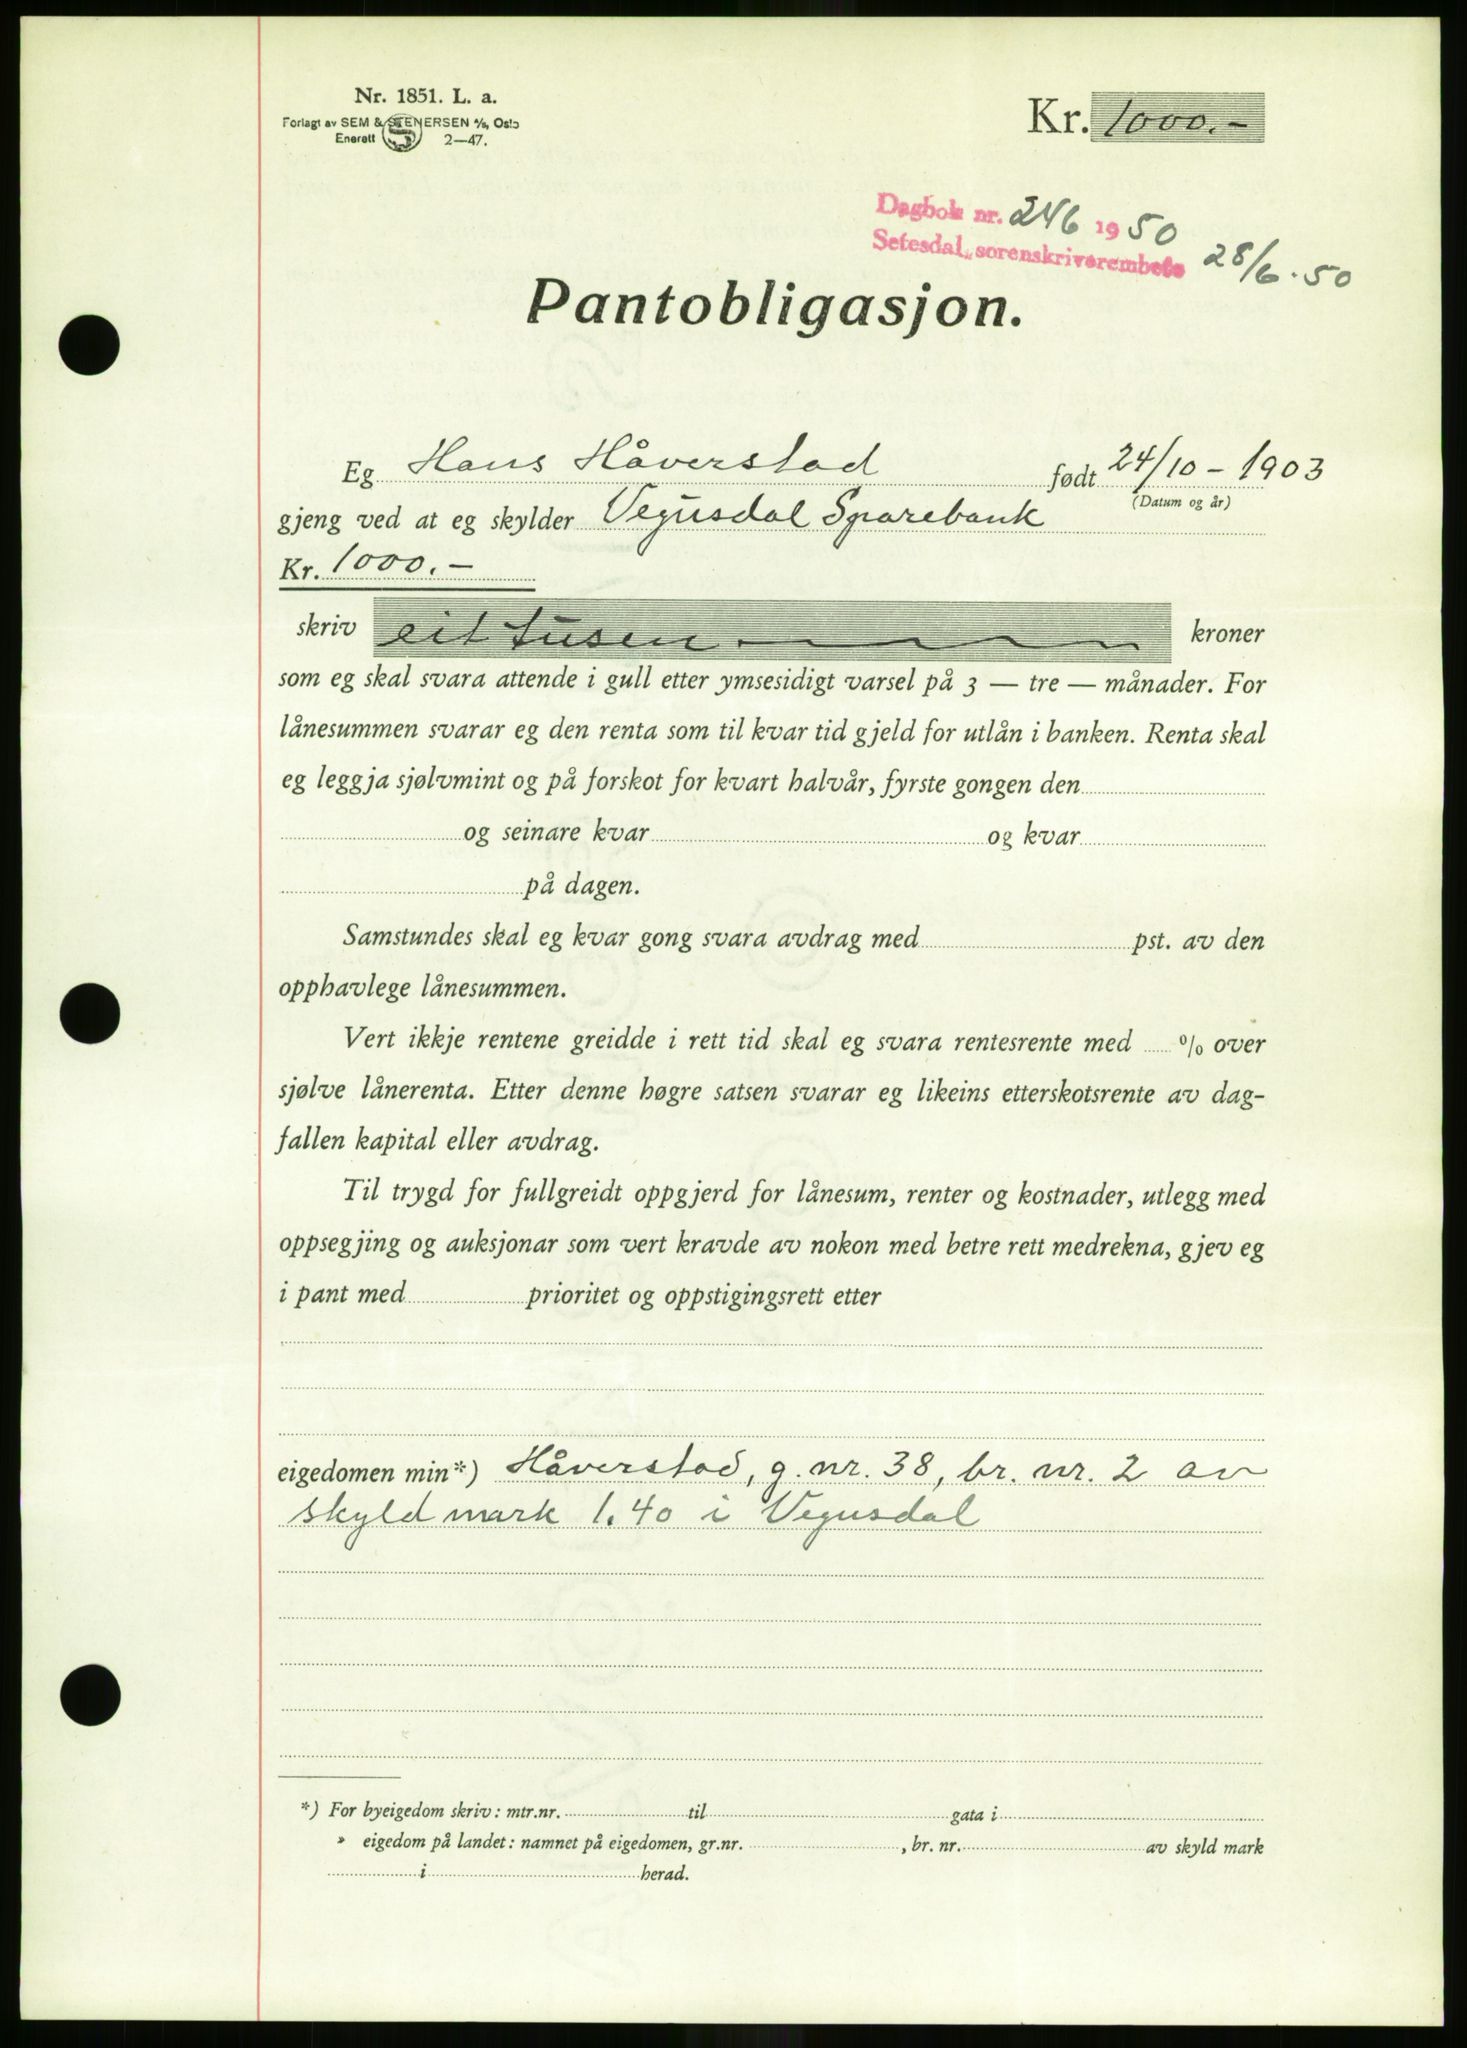 Nr. 1851. L. a.
Forlagt av SEM & STENERSEN A/S, Oslo
Enerett 2—47.
Kr. 1000.-
Dagbok nr. 246 1950
Setesdal sorenskriverembete 28/6.50
Pantobligasjon.
Eg Hans Håverstad født 24/10 - 1903
(Datum og år)
gjeng ved at eg skylder Vegusdal Sparebank
Kr. 1000.-
skriv eit tusen kroner
som eg skal svara attende i gull etter ymsesidigt varsel på 3 — tre — månader. For
lånesummen svarar eg den renta som til kvar tid gjeld for utlån i banken. Renta skal
eg leggja sjølvmint og på forskot for kvart halvår, fyrste gongen den
og seinare kvar og kvar
på dagen.
Samstundes skal eg kvar gong svara avdrag med pst. av den
opphavlege lånesummen.
Vert ikkje rentene greidde i rett tid skal eg svara rentesrente med % over
sjølve lånerenta. Etter denne høgre satsen svarar eg likeins etterskotsrente av dag-
fallen kapital eller avdrag.
Til trygd for fullgreidt oppgjerd for lånesum, renter og kostnader, utlegg med
oppsegjing og auksjonar som vert kravde av nokon med betre rett medrekna, gjev eg
i pant med prioritet og oppstigingsrett etter
eigedomen min*) Håverstad, g. nr. 38, br. nr. 2 av
skyld mark 1.40 i Vegusdal
*) For byeigedom skriv: mtr.nr. til gata i
» eigedom på landet: namnet på eigedomen, gr.nr. , br. nr. av skyld mark
i herad.